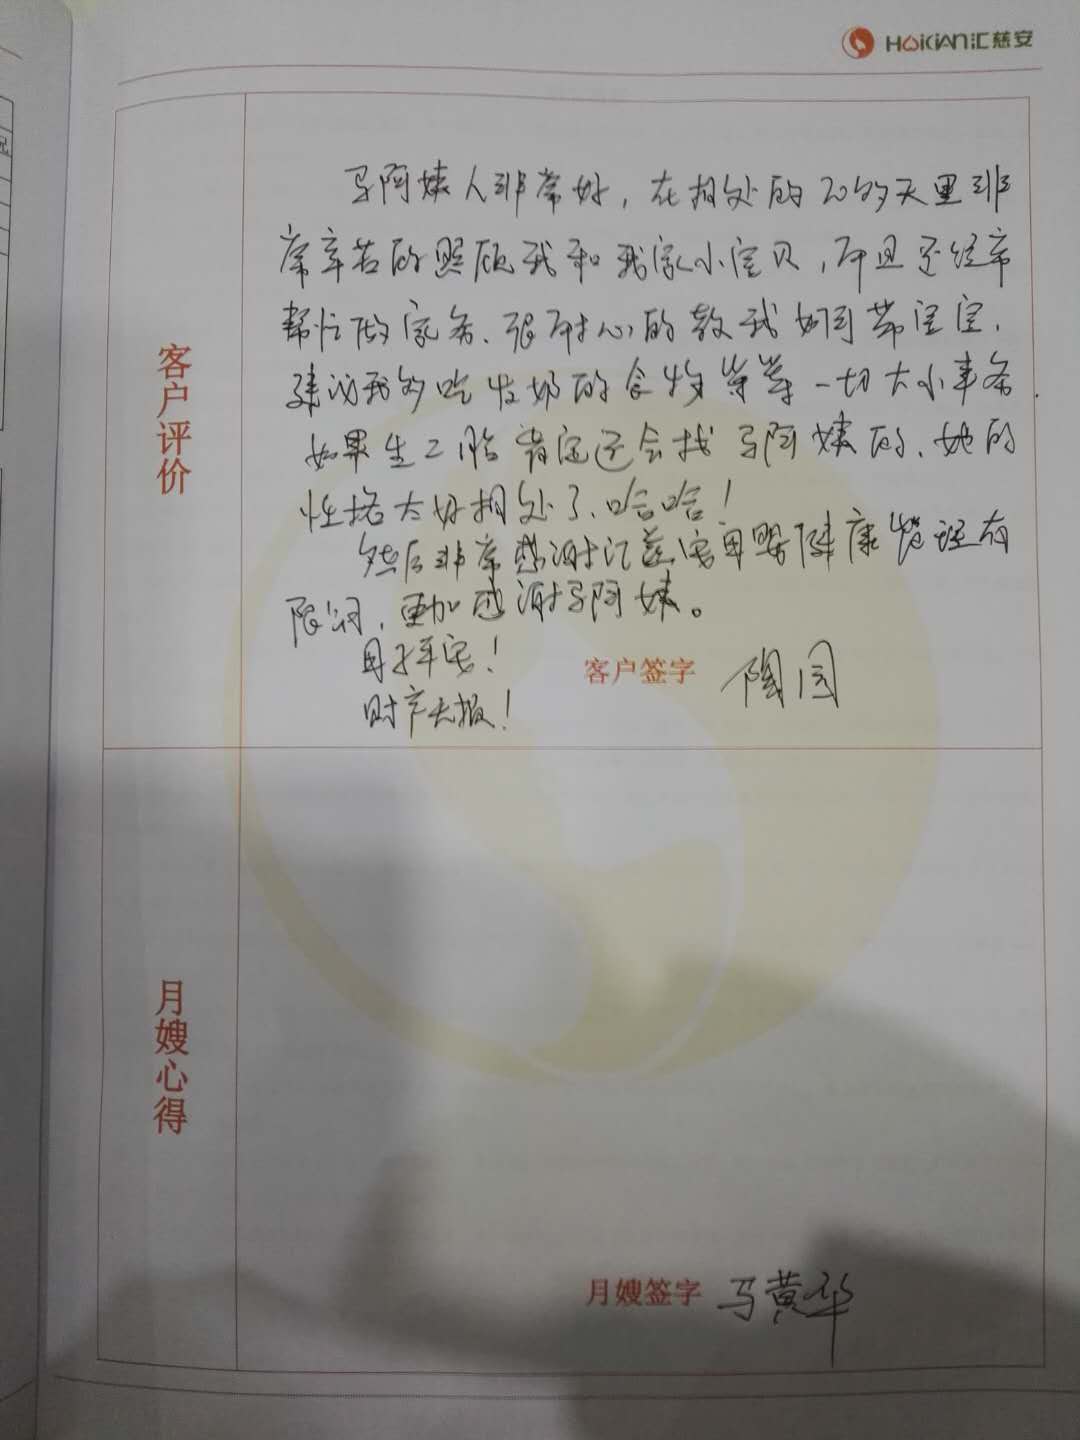 HOiKiAN汇慈安
客户评价
马阿姨人非常好，在相处的20多天里非
常辛苦的照顾我和我家小宝贝，而且还经常
帮忙做家务、很耐心的教我如何带宝宝、
建议我多吃发奶的食物等等一切大小事务.
如果生二胎肯定还会找马阿姨的、她的
性格太好相处了、哈哈！
然后非常感谢汇慈安母婴健康管理有
限公司，更加感谢马阿姨。
母子平安！
客户签字
月嫂心得
月嫂签字 马黄华